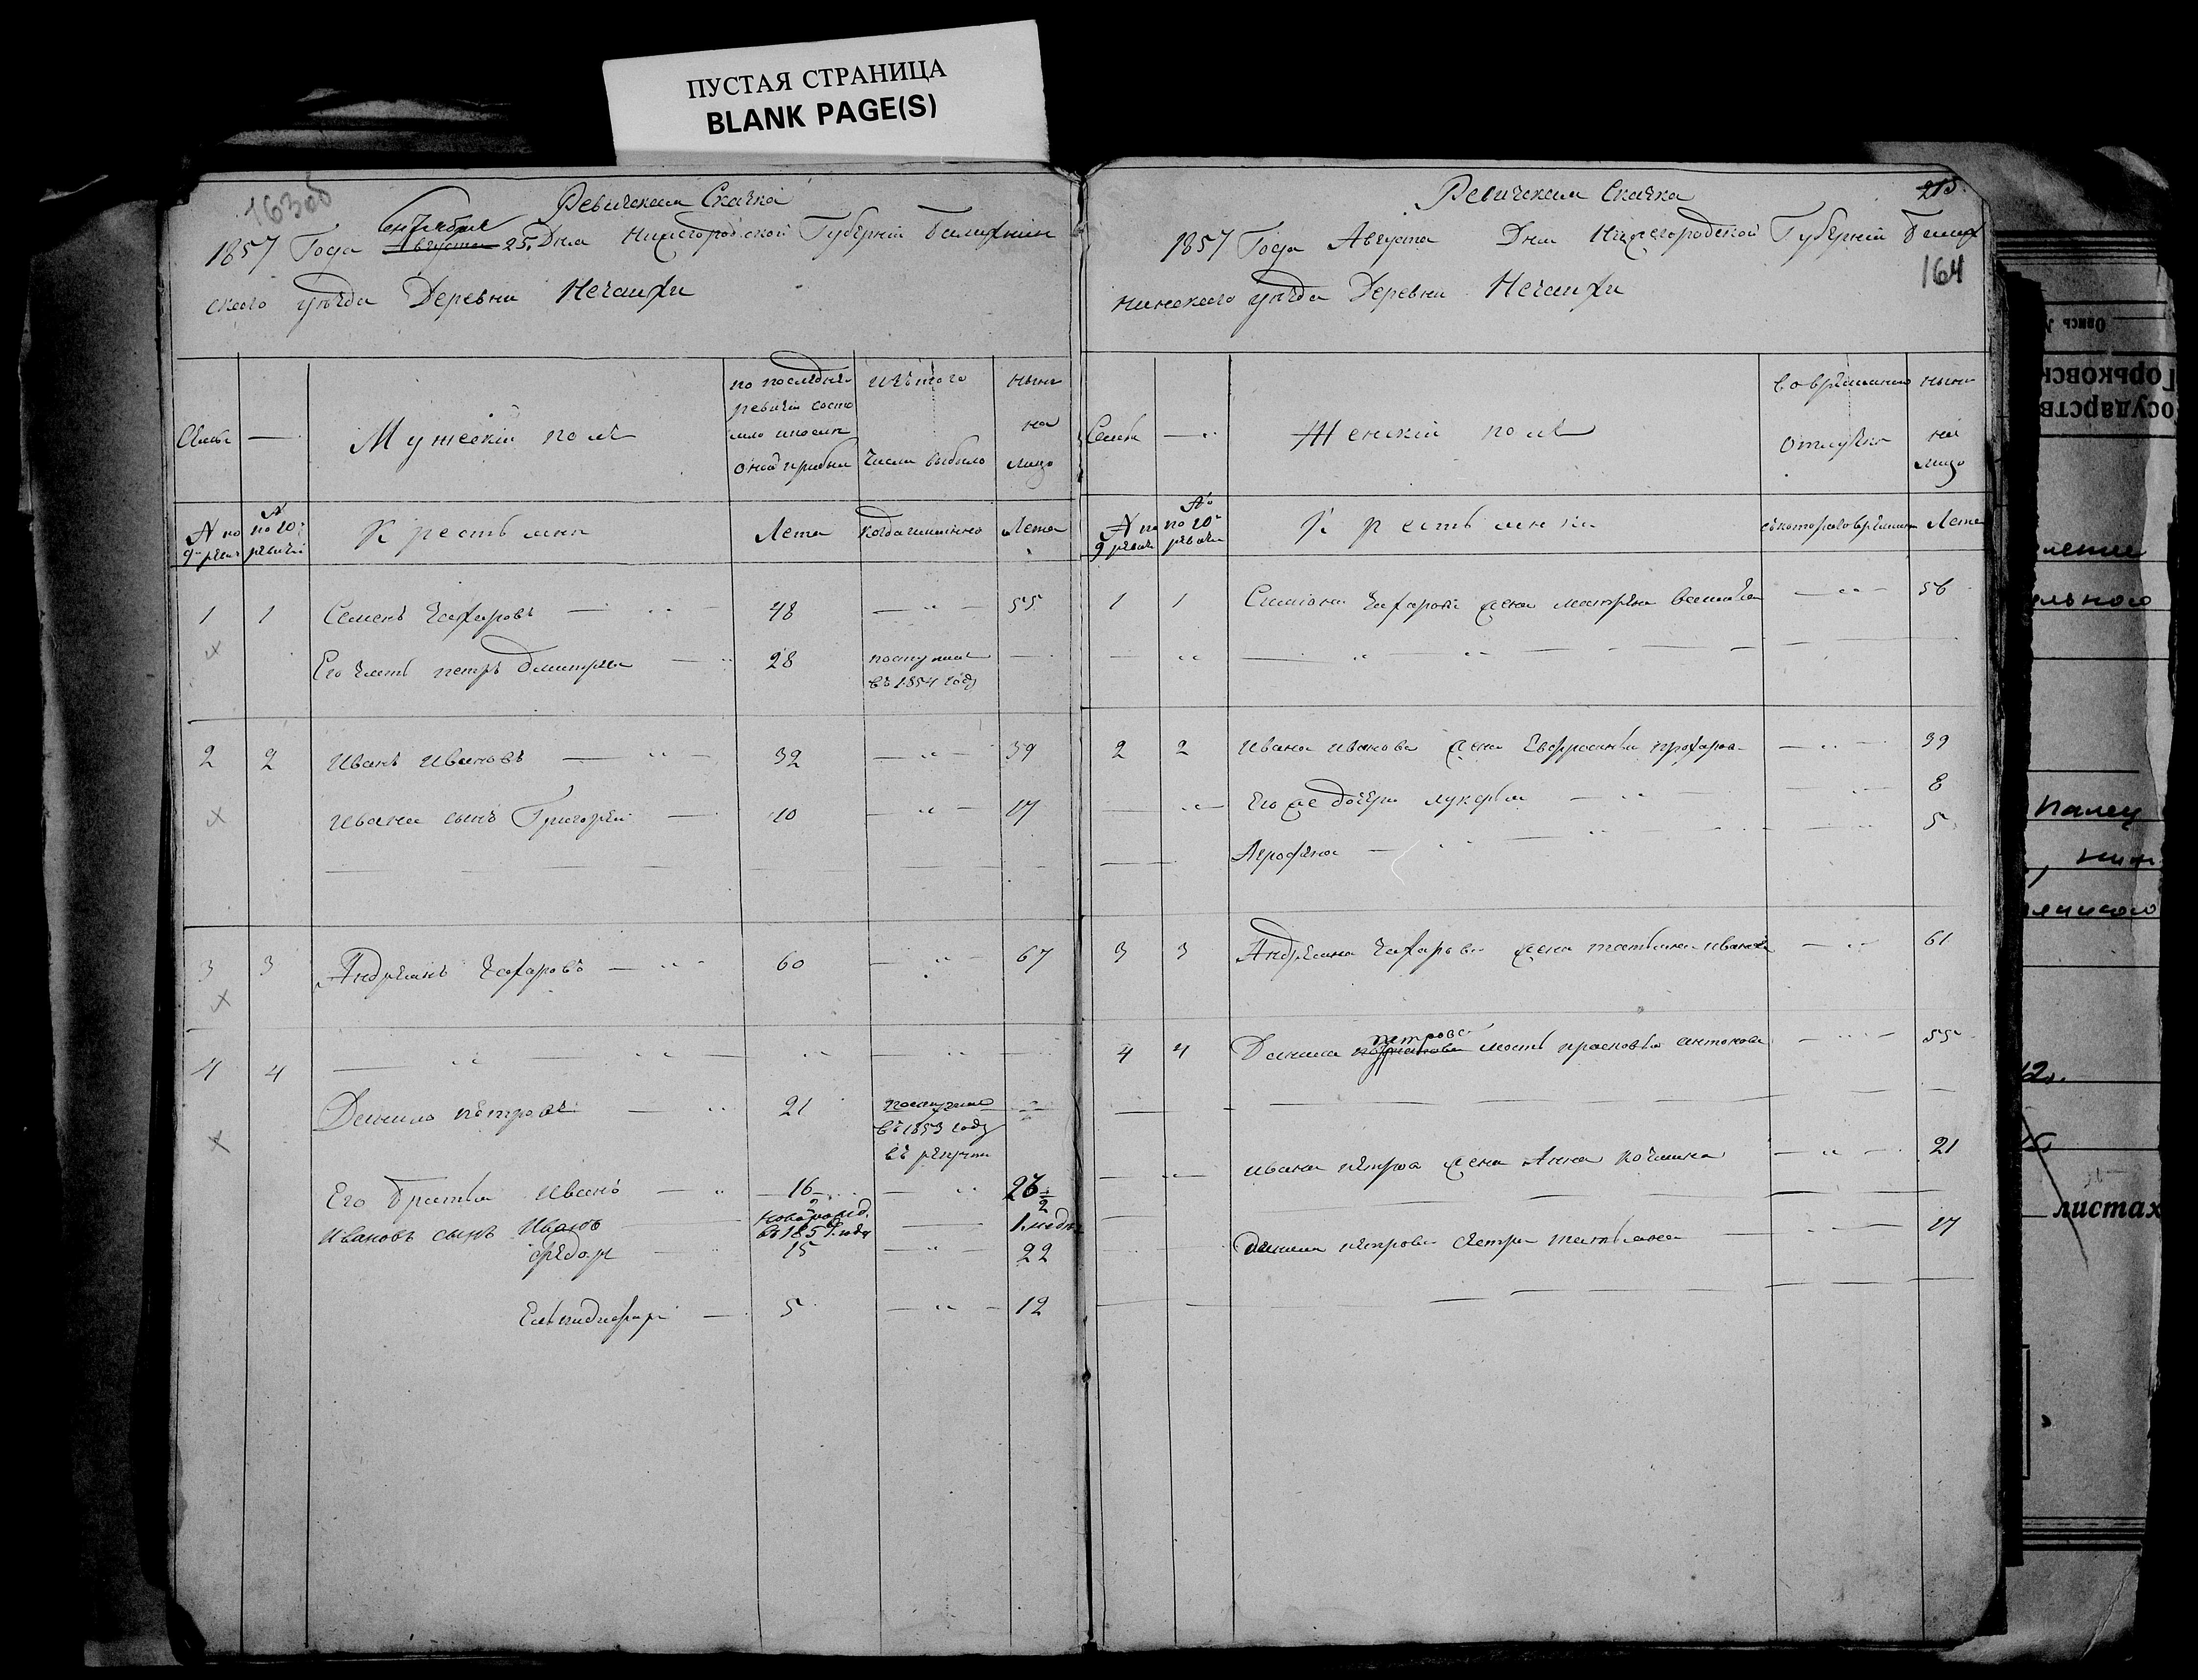 ПУСТАЯ СТРАНИЦА
BLANK PAGE(S)
163об
Ревизская Сказка
Сентября
1857 Года Августа 25. Дня Нижегородской Губернiи Балахнин
ского уѣзда Деревни Нечаихи
Семьи
Мужескiй полъ
по последней
ревизiи состо
яло и после
оной прибыло
изъ того
числа выбыло
ныне
на
лицо
№ по
9й ревиз
№
по 10й
ревизiи
Крестьяне
Лета
когда именно
Лета
1 1 Семенъ Захаровъ 48 55
Его зять петръ дмитрiев 28 поступил
въ 1854 году
2 2 Иванъ Ивановъ 32 39
Ивана сынъ Григорей 10 17
3 3 Андреянъ Захаровъ 60 67
4 4
Данило петровъ 21
въ 1853 году
въ рекруты
Его Братья Иванъ 16 23
Ивановъ сынъ Иванъ новорожд. 1. недѣ
въ 1857 года
Федоръ 15 22
Елпидифоръ 5 12
Ревизская Сказка
215
1857 Года Августа Дня Нижегородской Губернiи Балах
164
нинского уѣзда Деревни Нечаихи
Семьи
Женскiй полъ
во временной
отлучке
ныне
на
лицо
№ по
9 ревизи
№
по 10й
ревизи
Крестьянки
съ которого времени
Лета
1 1 Симиона Захарова жена матрена 56
2 2 Ивана Иванова жена Евфросинья 39
Его же дочери лукерья 8
Агрофена 5
3 3 Андреяна Захарова жена татьяна иванова 61
петрова
4 4 Данила мать прасковья антонова 55
ивана петрова жена Анна 21
данила петрова сестра татьяна 17
Опись №
Горьковск
осударств
ельного
палец
12.
листах